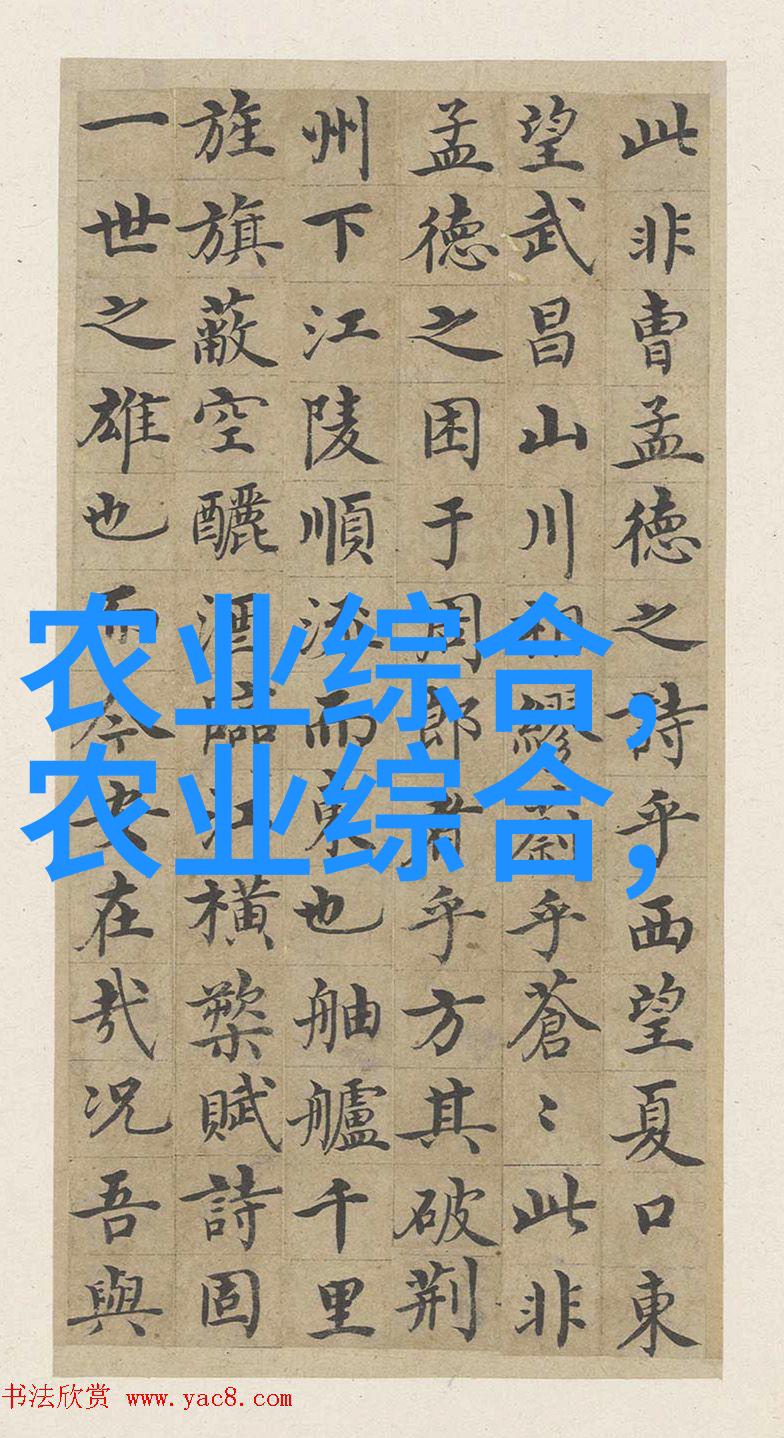 此非曹孟德之詩乎西望夏口東
望武昌山川相繆乎蒼〻此非
孟德之困于周郎者乎方其破荆
州下江陵順流而東也舳艫千里
旌旗蔽空釃酒臨江横槊賦詩固
一世之雄也而今安在哉况吾與
农业综合,
农业综合,
书法欣赏 www.yac8.com